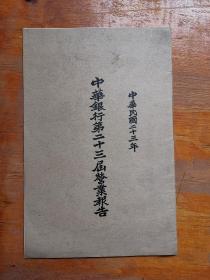 中華民國二十三年
中華銀行第二十三屆營業報告